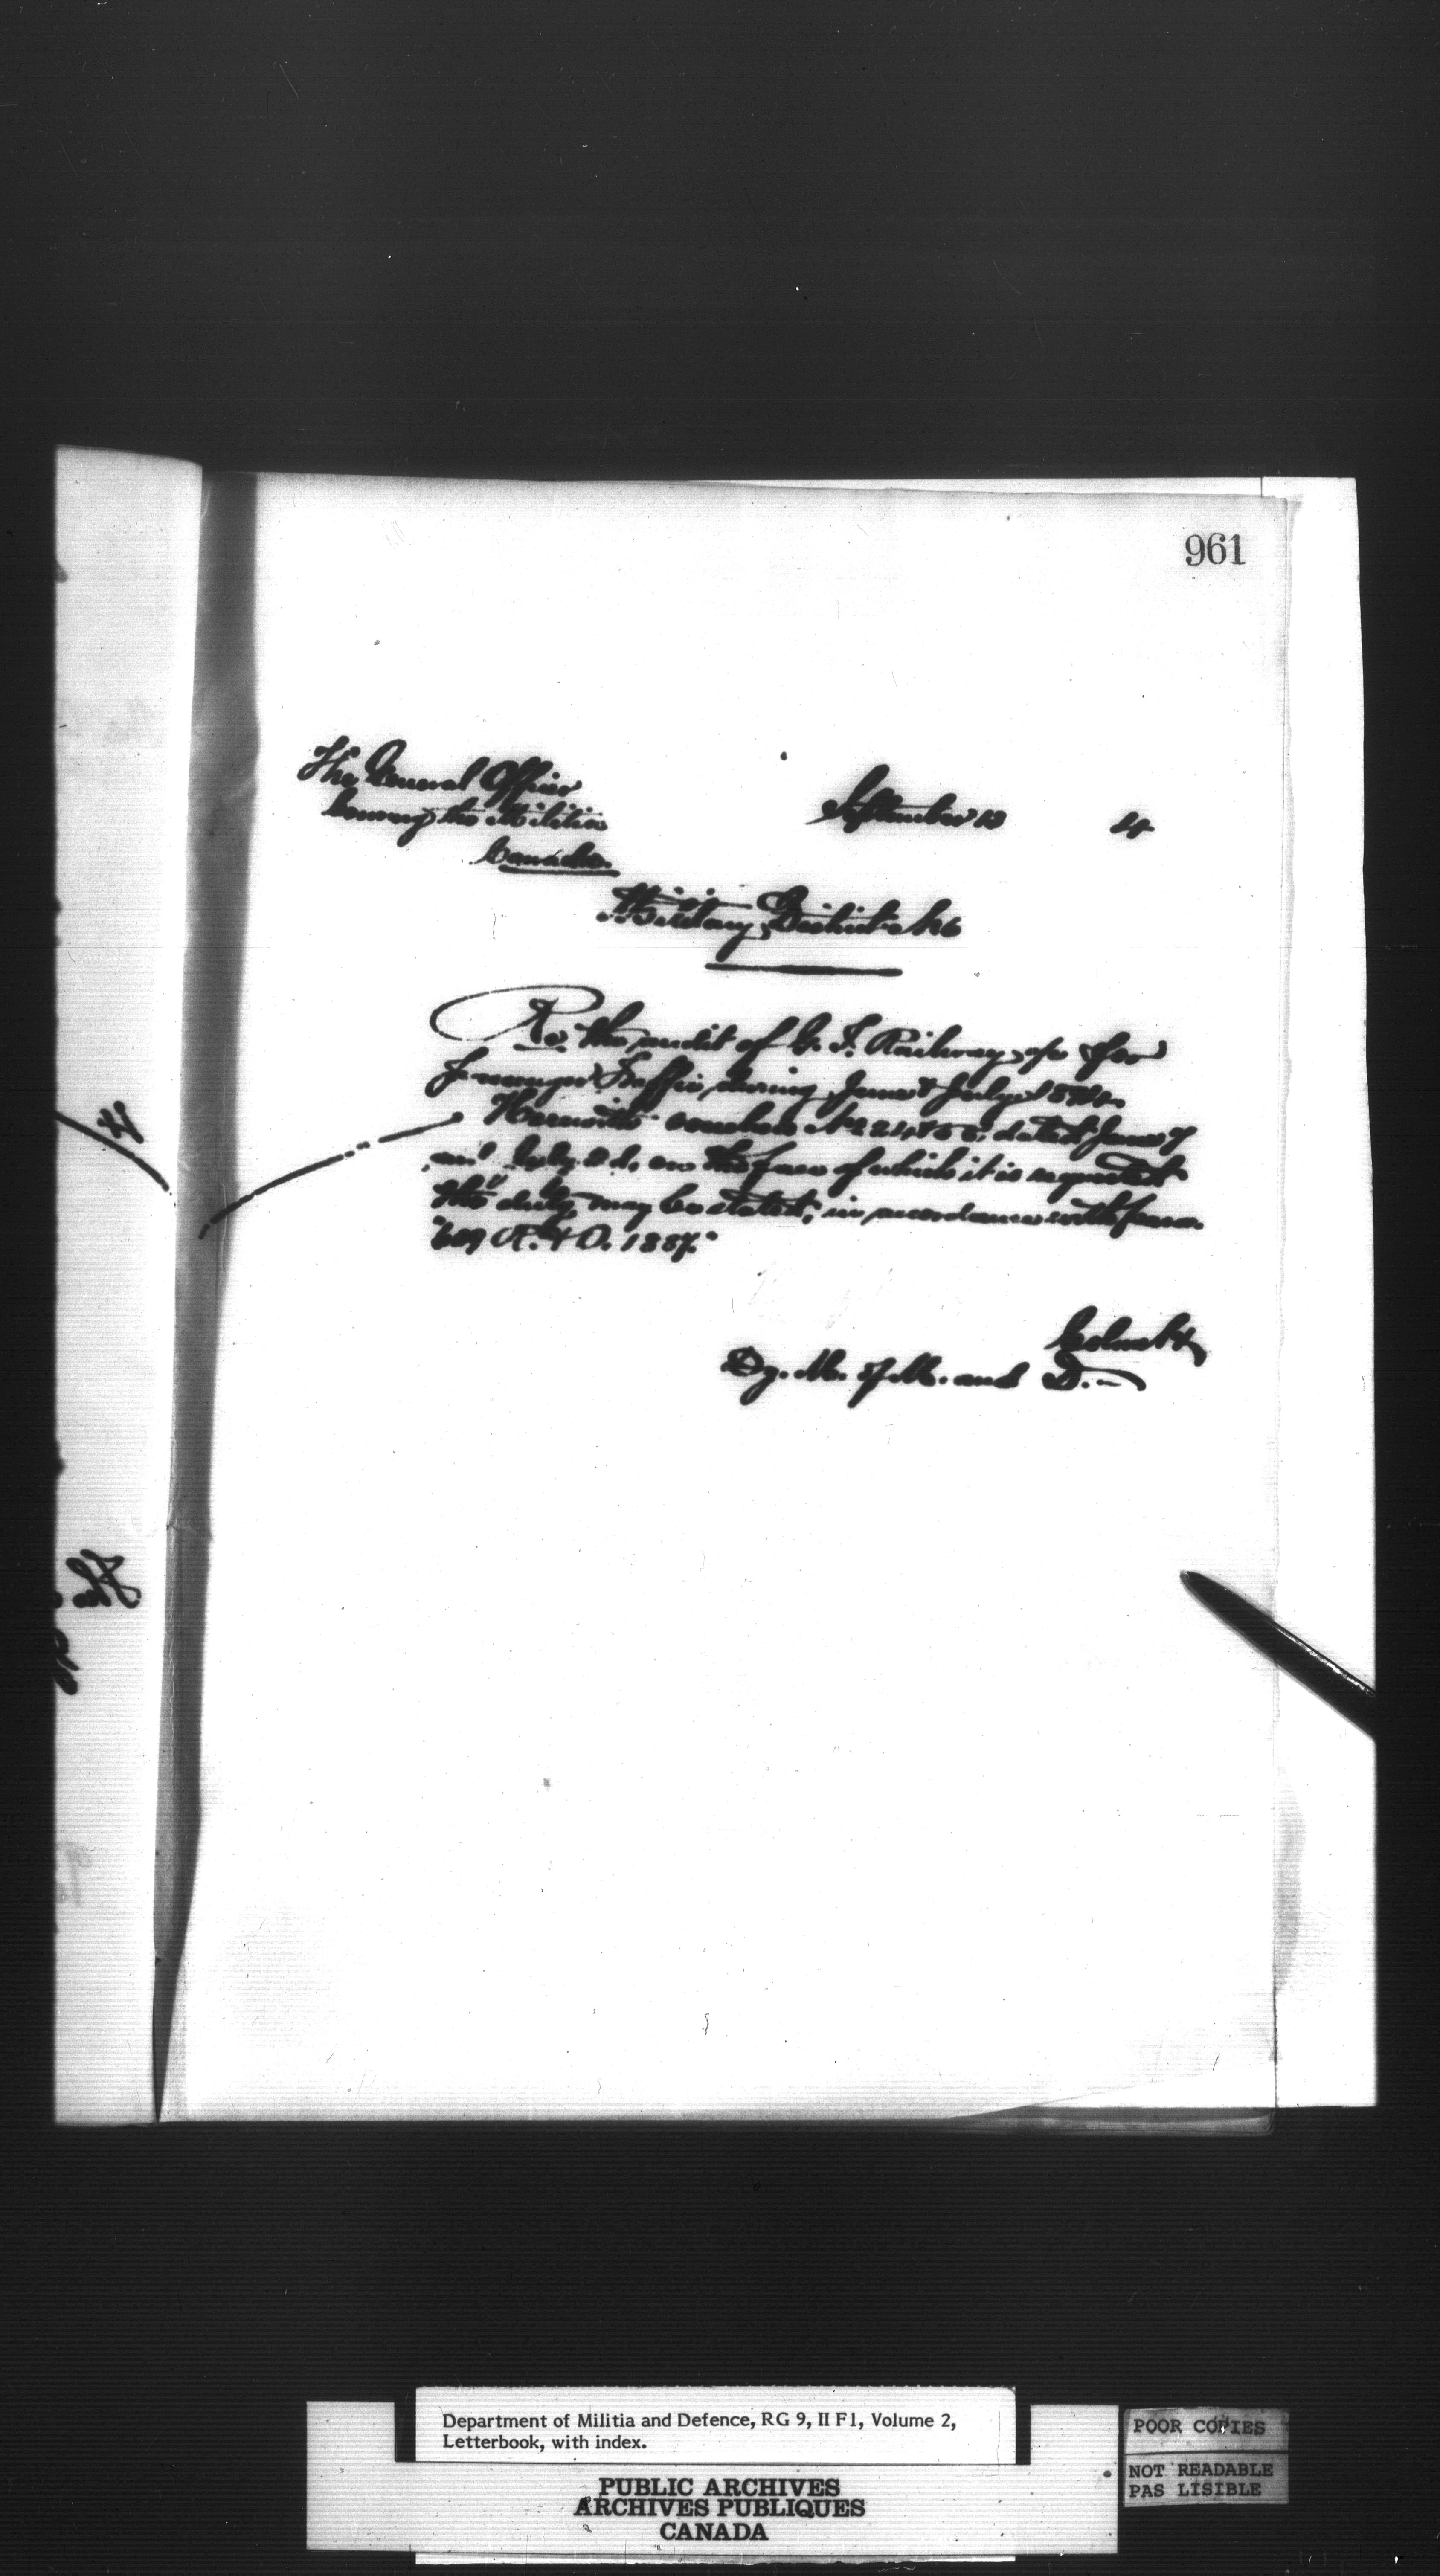 961
The General Officer
Comng the Militia
Canada.
September 13
4
Military District No 6
Re the audit of G. T. Railway a/c for
Passenger Traffic during June & July 1894.
Herewith vouchers Nos dated June 7
and July on the face of which it is requested
the duty may be stated, in accordance with para.
R. & O. 1887.
Colonel
Dy. M. of M. and D.
The
Department of Militia and Defence, RG 9, II F1, Volume 2,
Letterbook, with index.
PUBLIC ARCHIVES
ARCHIVES PUBLIQUES
CANADA
POOR COPIES
NOT READABLE
PAS LISIBLE